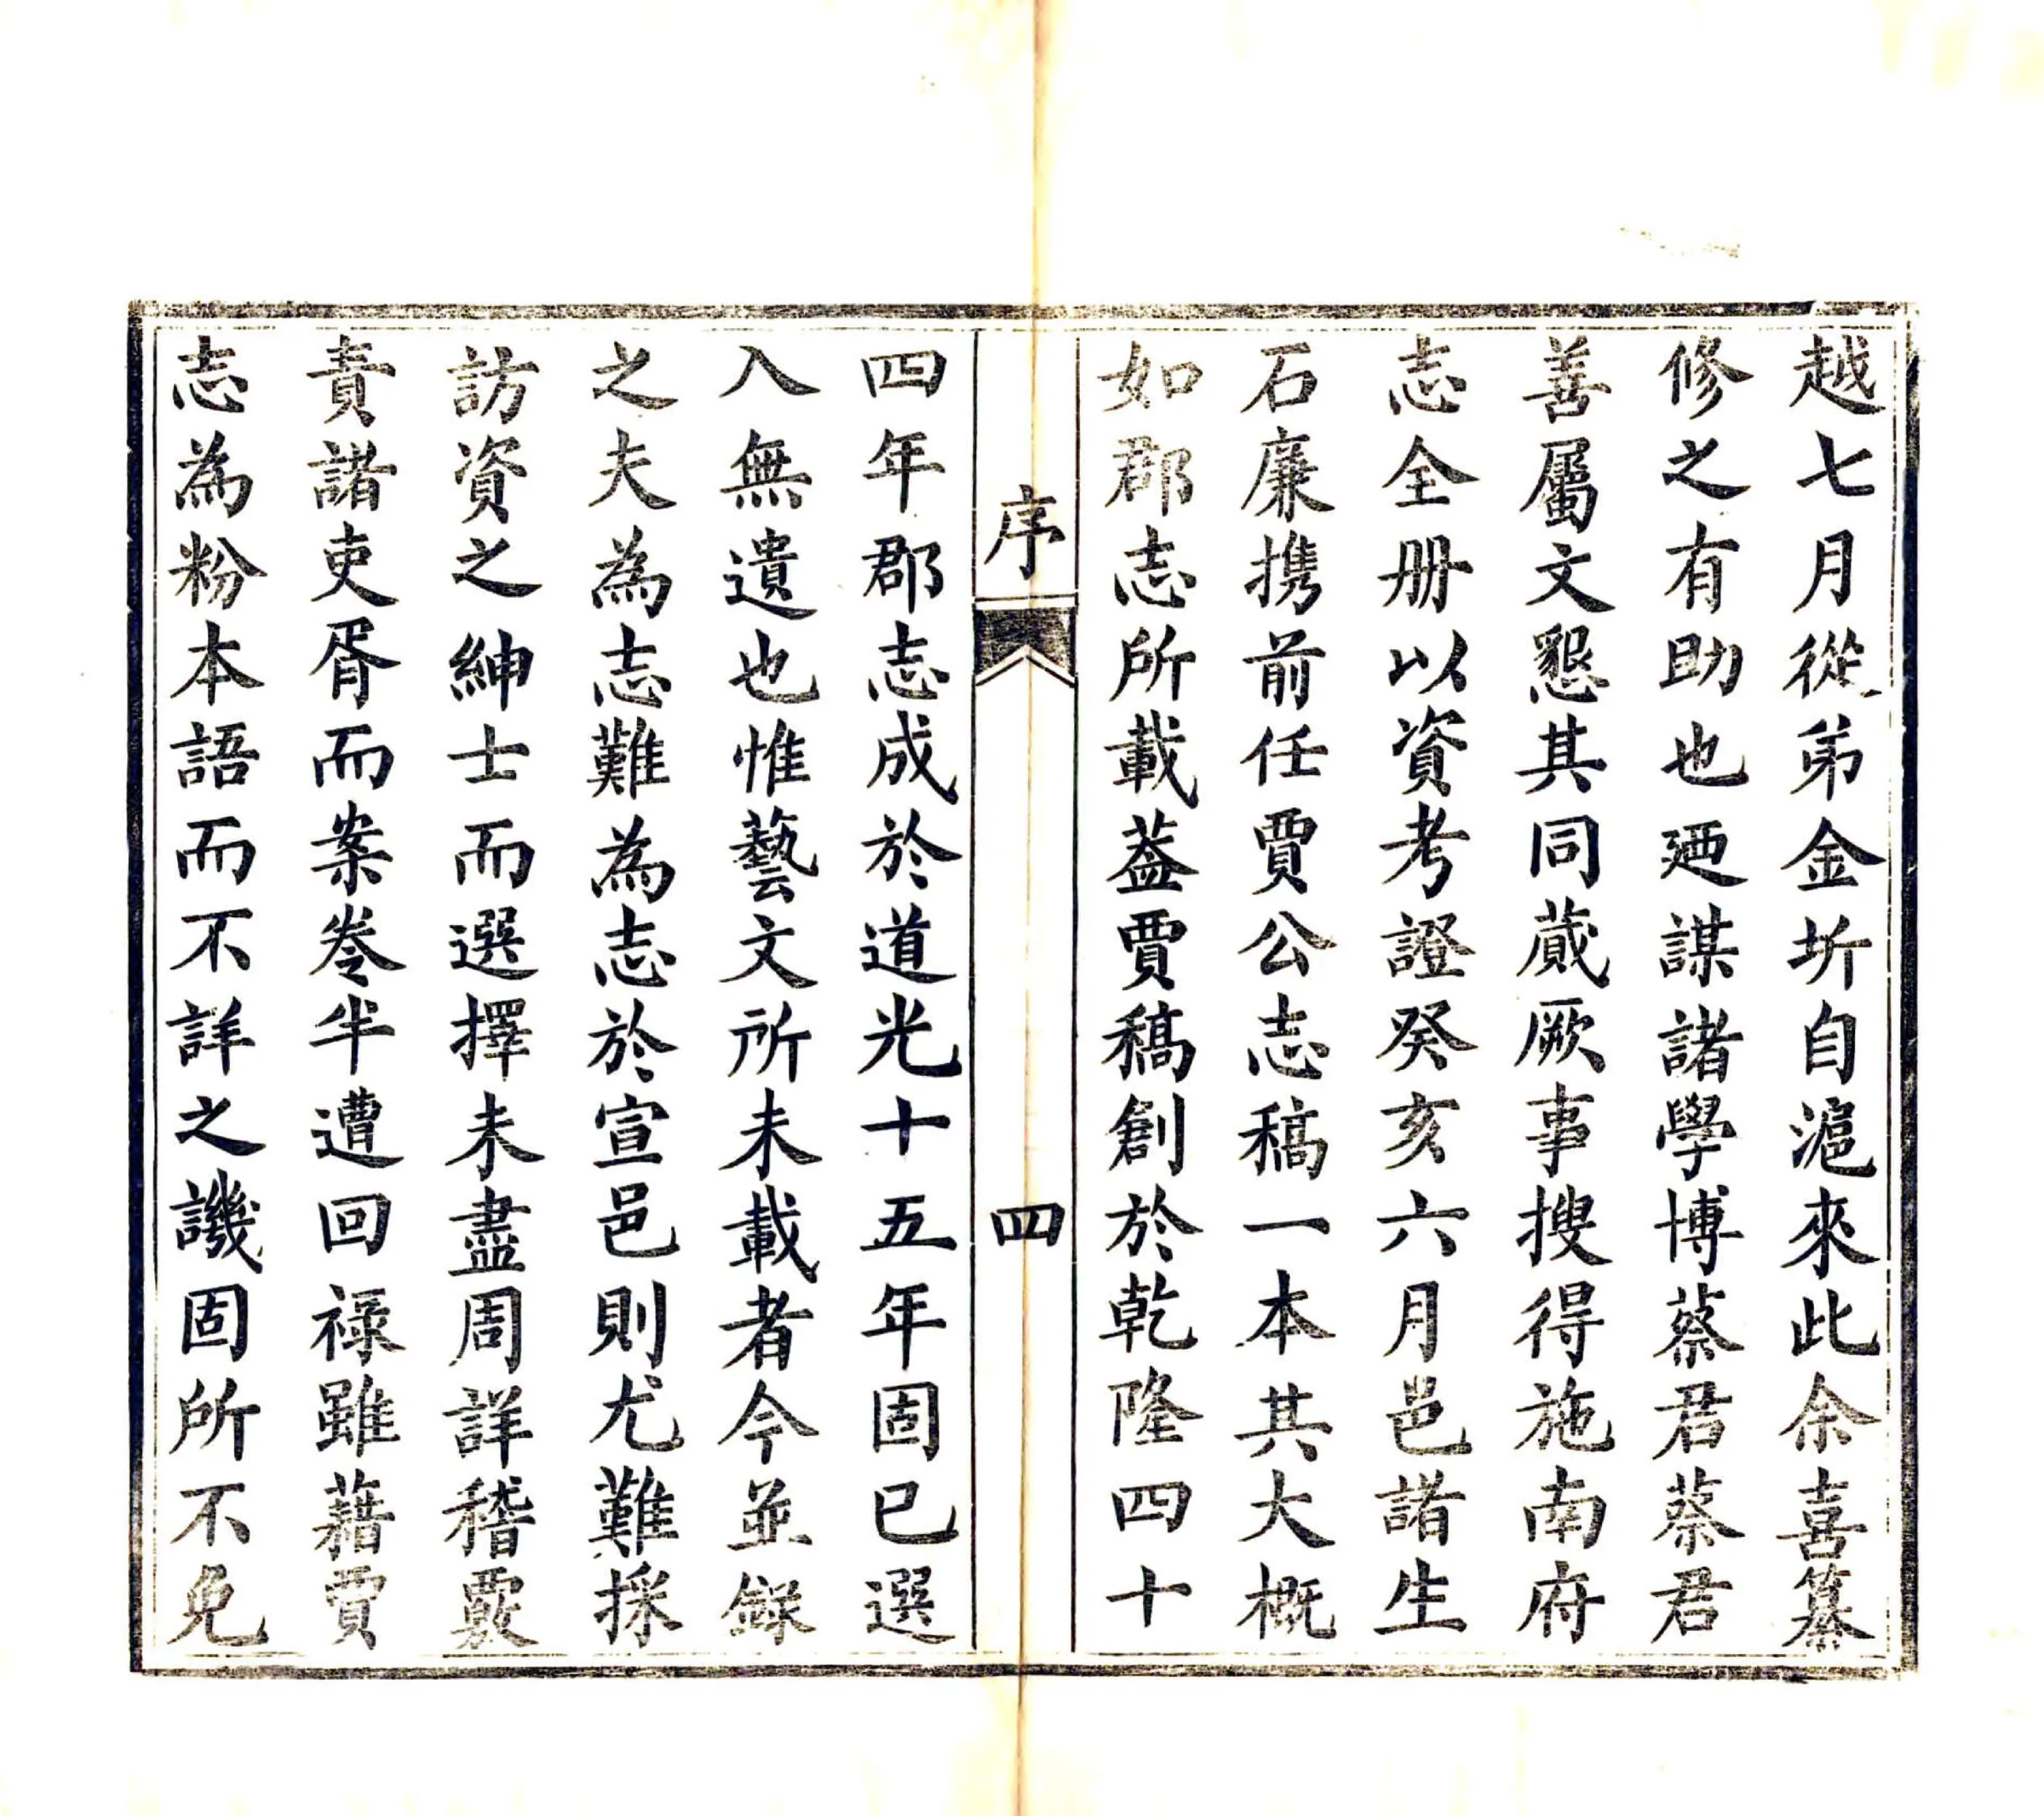 越七月從弟金圻自滬來此余喜纂
修之有助也迺謀諸學博蔡君蔡君
善屬文懇其同蕆厥事搜得施南府
志全册以資考證癸亥六月邑諸生
石廉携前任賈公志稿一本其大概
如郡志所載葢賈稿創於乾隆四十
序
四
四年郡志成於道光十五年固已選
入無遺也惟藝文所未載者今並錄
之夫為志難為志於宣邑則尤難採
訪資之紳士而選擇未盡周詳稽覈
責諸吏胥而案卷半遭回祿雖藉賈
志為粉本語而不詳之譏固所不免